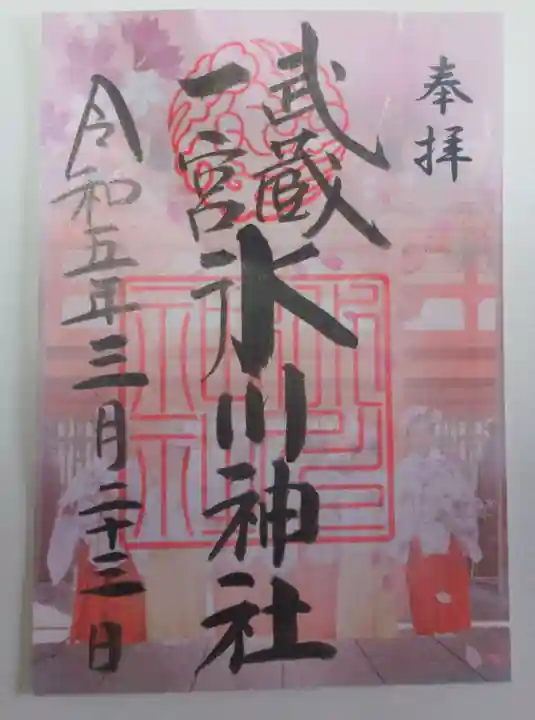 奉拝
武蔵
一宮
氷川神社
令和五年三月二十三日